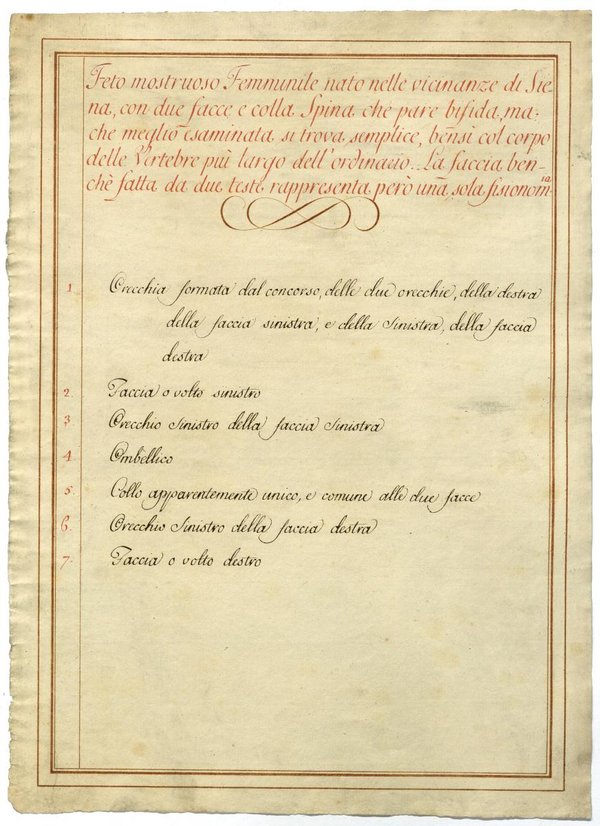 Feto mostruoso Femminile nato nelle vicinanze di Sie-
na, con due facce e colla Spina che pare bifida, ma
che meglio esaminata si trova semplice, bensì col corpo
delle Vertebre più largo dell'ordinario. La faccia ben-
chè fatta da due teste rappresenta però una sola fisionomia
1 Orecchia formata dal concorso, delle due orecchie, della destra
della faccia sinistra, e della Sinistra, della faccia
destra
2. Faccia o volto sinistro
3 Orecchio Sinistro della faccia Sinistra
4 Ombellico
5. Collo apparentemente unico, e comune alle due facce
6. Orecchio Sinistro della faccia destra
7. Faccia o volto destro